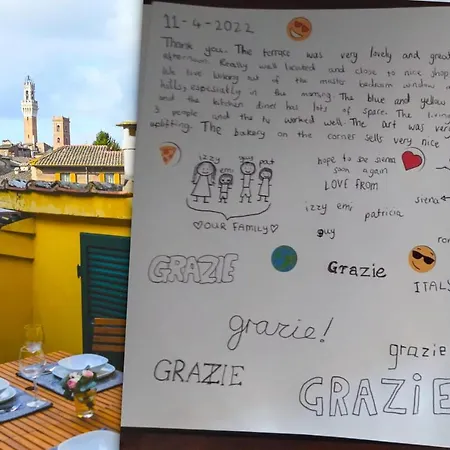 11-4-2022
Thank you. The terrace was very lovely and great
afternoon. Really well located and close to nice shop
We live looking out of the master bedroom window
hills, especially in the morning. The blue and yellow
and the kitchen diner has lots of space. The living
3 people and the tv worked well. The art was very
uplifting. The bakery on the corner sells very nice
izzy emi guy pat
OUR FAMILY
hope to be siena
soon again
LOVE FROM
izzy emi
patricia
guy
siena
ITALY
GRAZIE
Grazie
grazie!
grazie
GRAZIE
GRAZIE